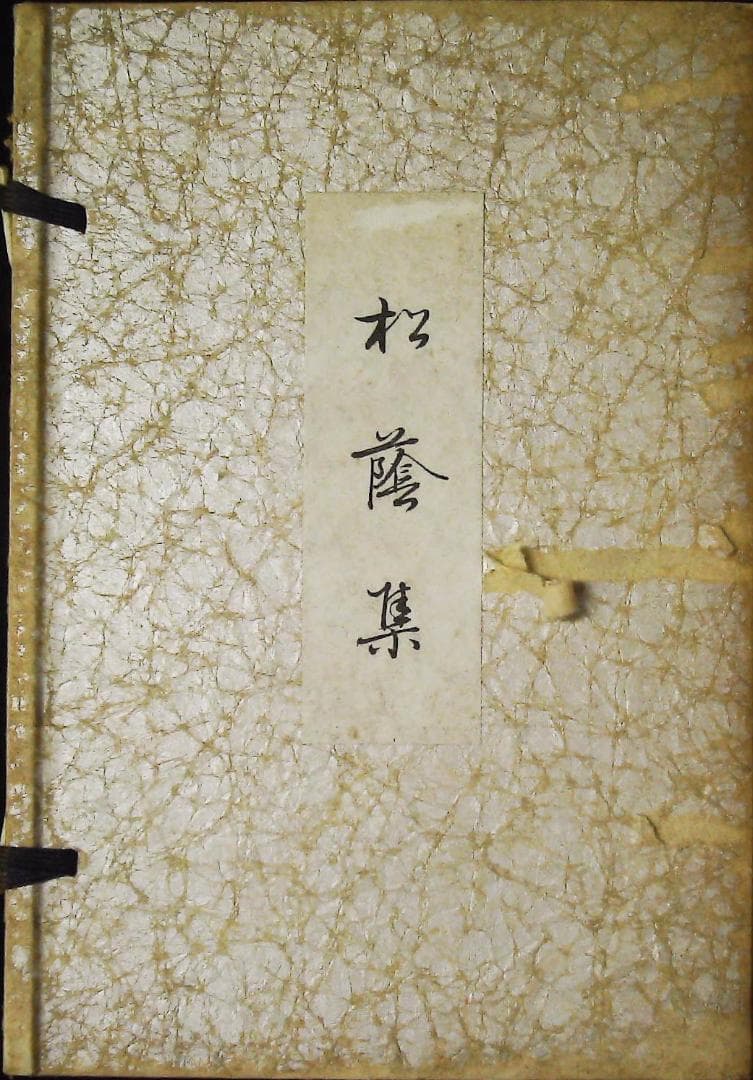 松蔭集